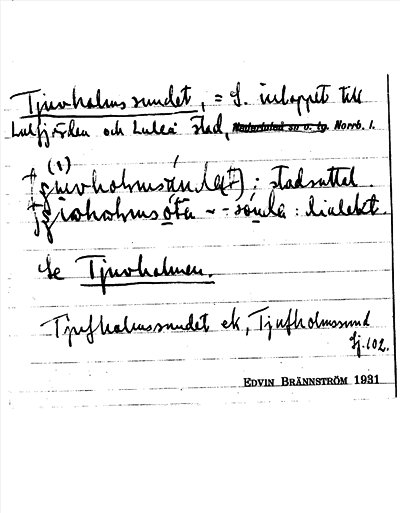 Tjuvholmssundet, = S. inloppet till
Lulefjärden och Luleå stad, Norrb. l.
(1)
: stadsuttal.
: dialekt.
Se Tjuvholmen.
Tjufholmssundet ek, Tjufholmssund
Sj. 102.
EDVIN BRÄNNSTRÖM 1931